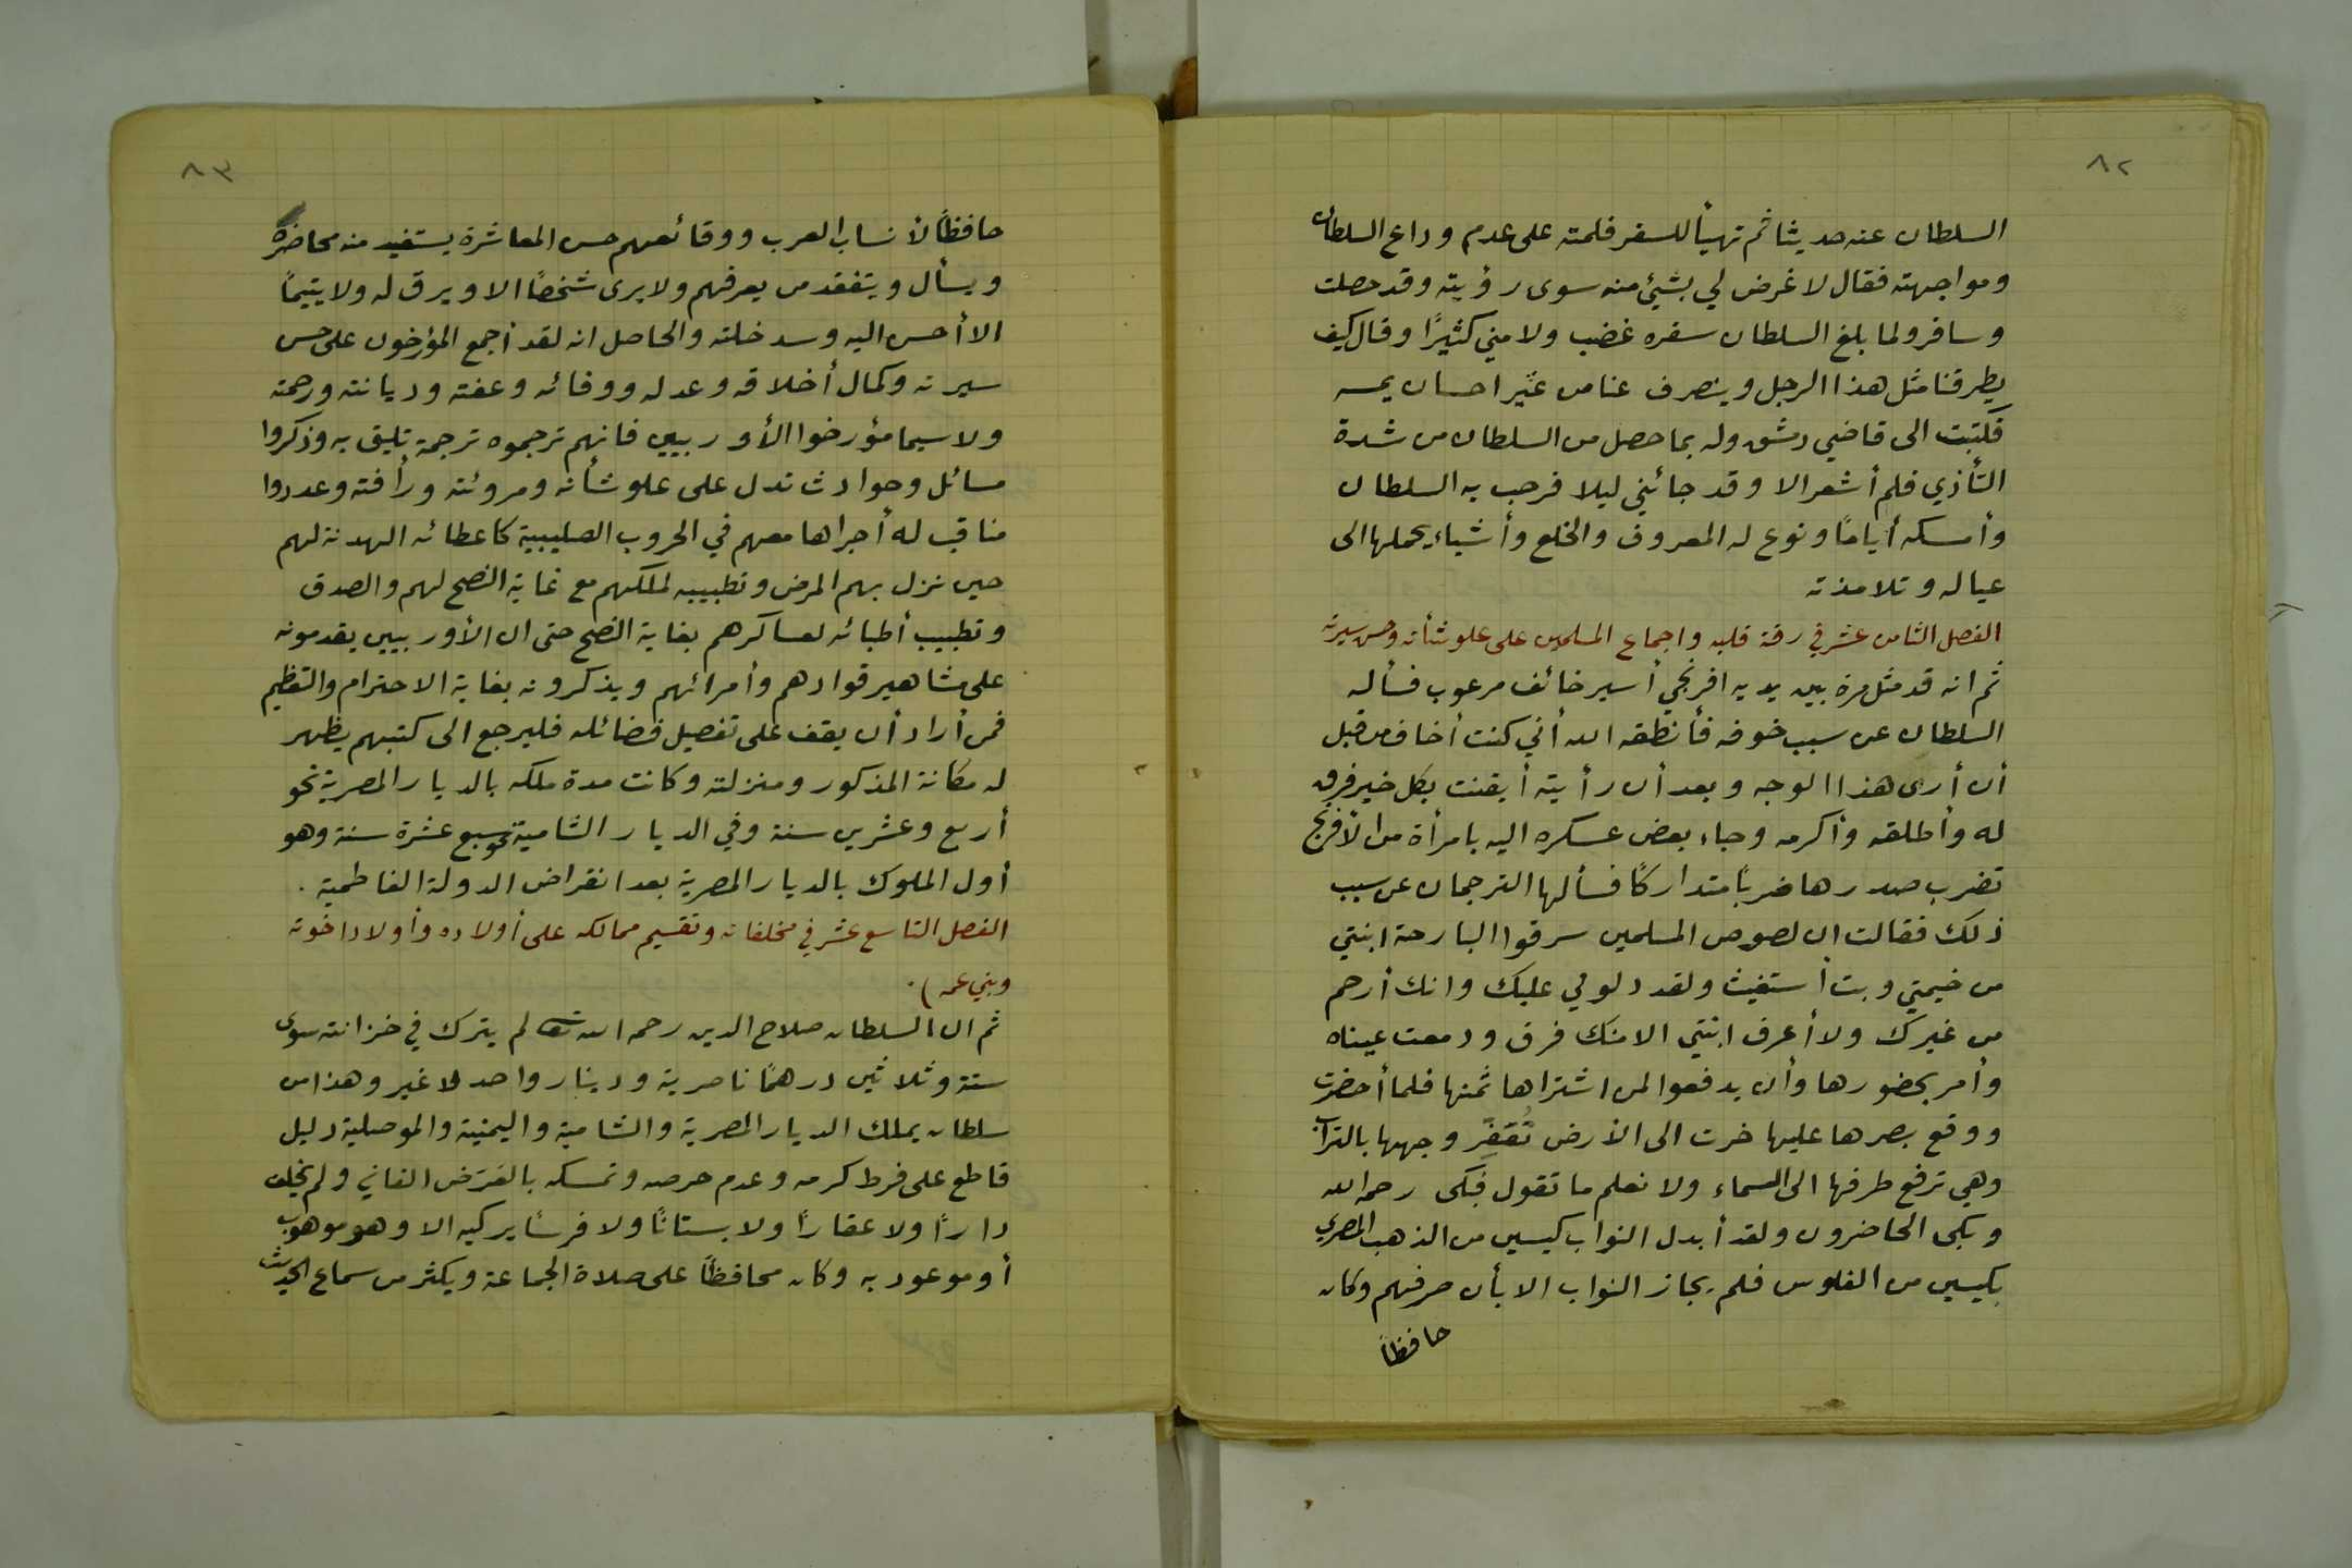 ٨٢
السلطان عنه حديثا ثم تهيأ للسفر فلمته على عدم وداع السلطان
ومواجهته فقال لا غرض لي بشيئ منه سوى رؤيته وقد حصلت
وسافر ولما بلغ السلطان سفره غضب ولامني كثيرًا وقال كيف
يطرقنا مثل هذا الرجل وينصرف عنا من غير احسان يمسه
فكتبت الى قاضي دمشق وله بما حصل من السلطان من شدة
التأذي فلم أشعر الا وقد جائني ليلا فرحب به السلطان
وأمسكه أيامًا ونوع له المعروف والخلع وأشياء يحملها الى
عياله وتلامذته
الفصل الثامن عشر في رقة قلبه واجماع المسلمين على علو شأنه وحسن سيرته
ثم انه قد مثل مرة بين يديه افرنجي أسير خائف مرعوب فسأله
السلطان عن سبب خوفه فأنطقه الله أني كنت أخاف من قبل
أن أرى هذا الوجه وبعد أن رأيته أيقنت بكل خير فرق
له وأطلقه وأكرمه وجاء بعض عسكره اليه بامرأة من الأفرنج
تضرب صدرها ضربًا متداركًا فسألها الترجمان عن سبب
ذلك فقالت ان لصوص المسلمين سرقوا البارحة ابنتي
من خيمتي وبت أستغيث ولقد دلوني عليك وانك أرحم
من غيرك ولا أعرف ابنتي الا منك فرق ودمعت عيناه
وأمر بحضورها وأن يدفعوا لمن اشتراها ثمنها فلما أحضرت
ووقع بصرها عليها خرت الى الأرض تُعَفِّر وجهها بالتراب
وهي ترفع طرفها الى السماء ولا نعلم ما تقول فبكى رحمه الله
وبكى الحاضرون ولقد أبدل النواب كيسين من الذهب المصري
بكيسين من الفلوس فلم يجاز النواب الا بأن صرفهم وكان
حافظاً
٨٣
حافظاً لأنساب العرب ووقائعهم حسن المعاشرة يستفيد منه محاضره
ويسأل ويتفقد من يعرفهم ولا يرى شخصًا الا ويرق له ولا يتيمًا
الا أحسن اليه وسد خلته والحاصل انه لقد أجمع المؤرخون على حسن
سيرته وكمال أخلاقه وعدله ووفائه وعفته وديانته ورحمته
ولا سيما مؤرخوا الأوربيين فانهم ترجموه ترجمة تليق به وذكروا
مسائل وحوادث تدل على علو شأنه ومروئته ورأفته وعددوا
مناقب له أجراها معهم في الحروب الصليبية كاعطائه الهدنة لهم
حين نزل بهم المرض وتطبيبه لملكهم مع غاية النصح لهم والصدق
وتطبيب أطبائه لعساكرهم بغاية النصح حتى ان الأوربيين يقدمونه
على مشاهير قوادهم وأمرائهم ويذكرونه بغاية الاحترام والتعظيم
فمن أراد أن يقف على تفصيل فضائله فليرجع الى كتبهم يظهر
له مكانة المذكور ومنزلته وكانت مدة ملكه بالديار المصرية نحو
أربع وعشرين سنة وفي الديار الشامية نحو سبع عشرة سنة وهو
أول الملوك بالديار المصرية بعد انقراض الدولة الفاطمية .
الفصل التاسع عشر في مخلفاته وتقسيم ممالكه على أولاده وأولاد اخوته
وبني عمه) .
ثم ان السلطان صلاح الدين رحمه الله تعالى لم يترك في خزانته سوى
ستة وثلاثين درهمًا ناصرية ودينار واحد لا غير وهذا من
سلطان يملك الديار المصرية والشامية واليمنية والموصلية دليل
قاطع على فرط كرمه وعدم حرصه وتمسكه بالعَرَض الفاني ولم يخلف
دارًا ولا عقارًا ولا بستانًا ولا فرسًا يركبه الا وهو موهوب
أو موعود به وكان محافظاً على صلاة الجماعة ويكثر من سماع الحديث